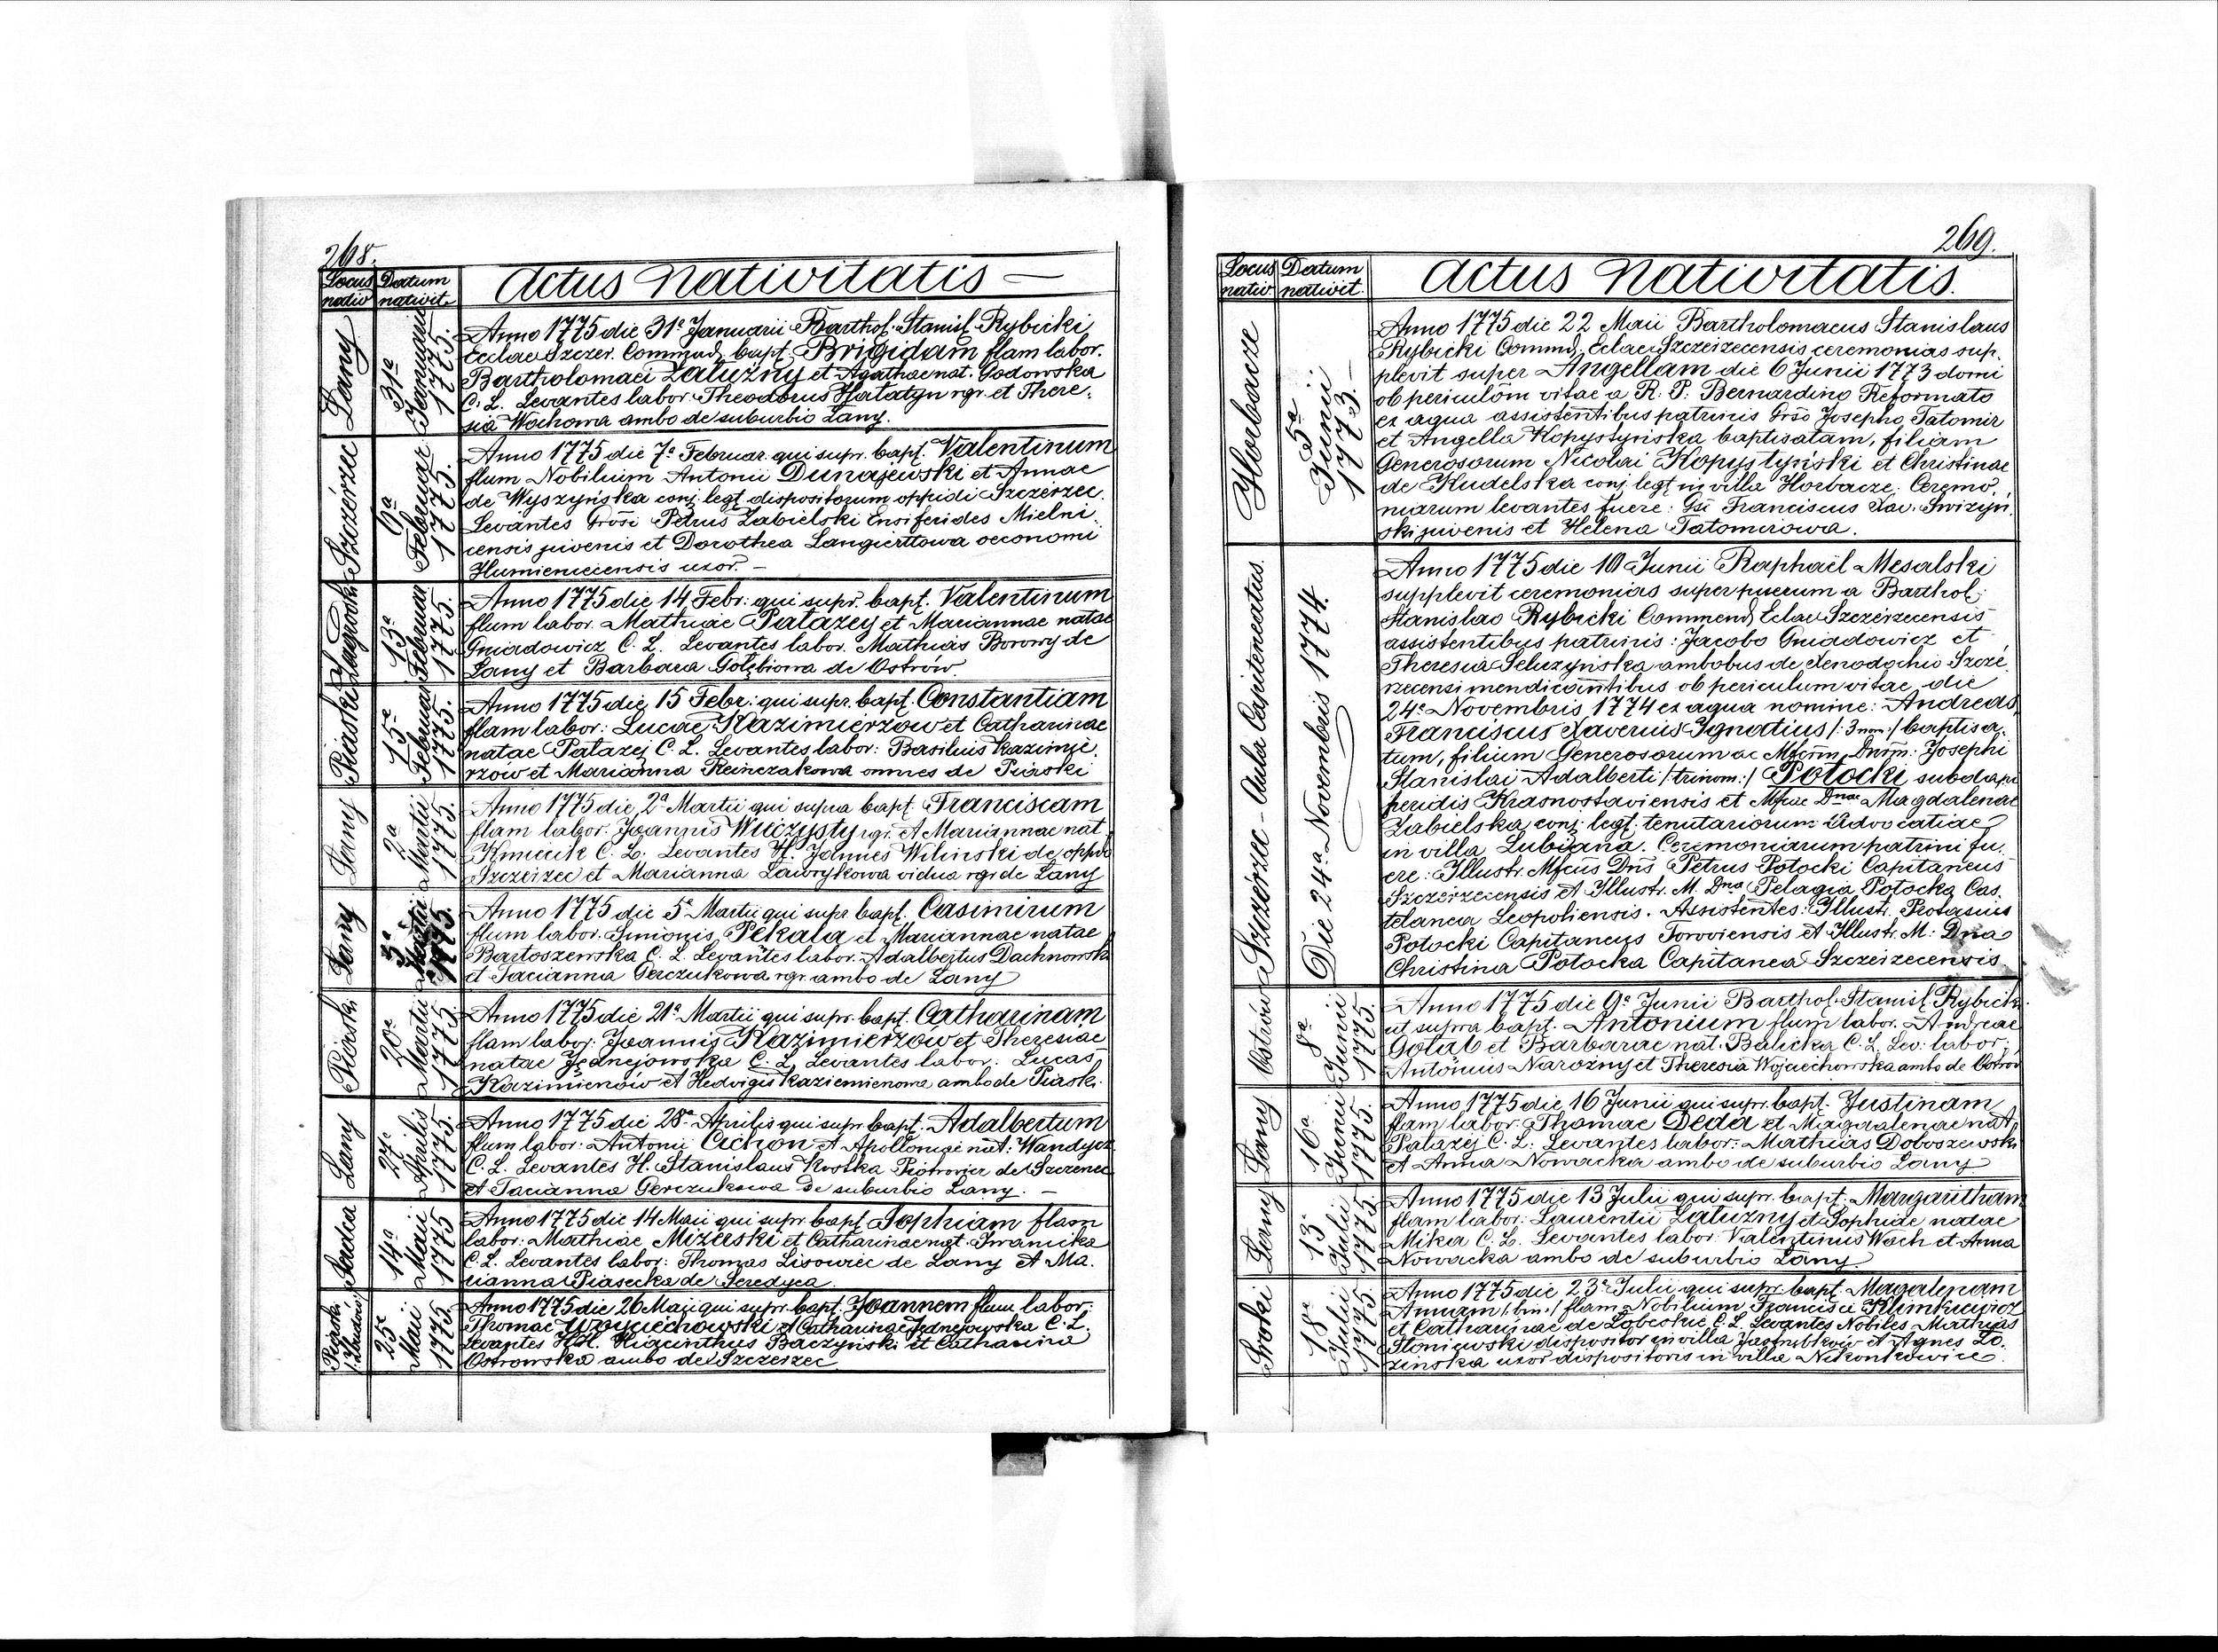 268.
Locus nativ.
Datum nativit.
Actus Nativitatis —
Łany
31ª Januarii 1775.
Anno 1775 die 31ª Januarii Barthol. Stanisl. Rybicki
Ecclae Szczer. Commend. bapt. Brigidam flam labor.
Bartholomaei Załużny et Agathae nat. Godowska
C. L. Levantes labor. Theodorus Hałatyn rgr. et There-
sia Wochowa ambo de suburbio Łany.
Szczérzec
6ª Februar 1775.
Anno 1775 die 7ª Februar. qui supr. bapt. Valentinum
flum Nobilium Antonii Dunajewski et Annae
de Wyszyńska conj. legt. dispositorum oppidi Szczérzec.
Levantes Grosi Petrus Zabielski Ensiferides Mielni-
censis juvenis et Dorothea Langierttowa oeconomi
Humieniecensis uxor. —
Zagrodki
13ª Februar 1775.
Anno 1775 die 14 Febr: qui supr. bapt. Valentinum
flum labor. Mathiae Patazey et Mariannae natae
Gniadowicz C. L. Levantes labor. Mathias Borowy de
Łany et Barbara Gołębiowa de Ostrów.
Piaski
15ª Februar 1775.
Anno 1775 die 15 Febr: qui supr. bapt. Constantiam
flam labor: Lucae Kazimierzow et Catharinae
natae Patazej C. L. Levantes labor: Basilius Kazimie-
rzów et Marianna Reinczakowa omnes de Piaski
Łany
2ª Martii 1775.
Anno 1775 die 2ª Martii qui supra bapt. Franciscam
flam labor: Joannis Wieczysty rgr. et Mariannae nat.
Kmiecik C. L. Levantes H. Joannes Wilinski de oppido
Szczerzec et Marianna Ławrykowa vidua rgr. de Łany
Łany
5ª Martii 1775.
Anno 1775 die 5ª Martii qui supr. bapt. Casimirum
flum labor. Simionis Pekala et Mariannae natae
Bartoszewska C. L. Levantes labor. Adalbertus Dachnowski
et Tacianna Gerczukowa rgr. ambo de Łany
Piaski
20ª Martii 1775
Anno 1775 die 21ª Martii qui supr. bapt. Catharinam
flam labor. Joannis Kazimierzów et Theresiae
natae Jędnejowska C. L. Levantes labor: Lucas
Kazimierzów et Hedvigis Kazimierzowa ambo de Piaski.
Łany
27ª Aprilis 1775.
Anno 1775 die 28ª Aprilis qui supr. bapt. Adalbertum
flum labor: Antonii Cichon et Apolloniae nat: Wandycz
C. L. Levantes H. Stanislaus Kostka Piotrowicz de Szczerzec
et Tacianna Gerczukowa de suburbio Łany. —
Sadca
14ª Maii 1775
Anno 1775 die 14 Maii qui supr. bapt. Sophiam flam
labor: Mathiae Mizelski et Catharinae nat. Iwanicka
C. L. Levantes labor: Thomas Lisowiec de Łany et Ma-
rianna Piasecka de Seredyca.
Piaski
25ª Maii 1775
Anno 1775 die 26 Maii qui supr. bapt. Joannem flum labor:
Thomae Woyciechowski et Catharinae Jednejowska C. L.
Levantes HH. Hiacinthus Baczynski et Catharina
Ostrowska ambo de Szczerzec
269.
Locus nativ
Datum nativit.
Actus Nativitatis.
Horbacze
5ª Junii 1773. —
Anno 1775 die 22 Maii Bartholomaeus Stanislaus
Rybicki Commd. Eclae Szczeizecensis ceremonias sup-
plevit super Angellam die 6 Junii 1773 domi
ob periculom vitae a R. P. Bernardino Reformato
ex aqua assistentibus patrinis Grso Josepho Tatomir
et Angella Kopystyńska baptisatam, filiam
Generosorum Nicolai Kopystyński et Christinae
de Kudelska conj. legt. in villa Horbacze. Ceremo-
niarum levantes fuere: Gsi Franciscus Xav. Swizyń-
ski juvenis et Helena Tatomirowa.
Szczérzec - Aula Capitaneatus.
Die 24ª Novembris 1774.
Anno 1775 die 10 Junii Raphaël Mesalski
supplevit ceremonias super puerum a Barthol:
Stanislao Rybicki Commend. Eclae Szczeizecensis
assistentibus patrinis: Jacobo Gniadowicz et
Theresia Seluzyńska ambobus de Xenodochio Szczé-
rzecensi mendicantibus ob periculum vitae die
24ª Novembris 1774 ex aqua nomine: Andreas,
Franciscus Xaverius Ignatius /: 3 nom :/ baptisa-
tum, filium Generosorum ac Mfcorm. Dnorm: Josephi
Stanislai Adalberti /: trinom :/ Potocki subdapi-
feridis Krasnostaviensis et Mfcae Dnae Magdalenae
Zabielska conj: legt: tenutariorum Advocatiae
in villa Lubiana. Ceremoniarum patrini fu-
ere: Illustr. Mfcus Dns Petrus Potocki Capitaneus
Szczeizecensis et Illustr. M. Dna Pelagia Potocka Cas-
telanea Leopoliensis. Assistentes: Illustr. Protasius
Potocki Capitaneus Toroviensis et Illustr. M: Dna
Christina Potocka Capitanea Szczeizecensis
Ostrów
8ª Junii 1775.
Anno 1775 die 9ª Junii Barthol. Stanisl. Rybicki
ut supra bapt. Antonium flum labor. Andreae
Gołąb et Barbarae nat. Balicka C. L. Lev: labor:
Antonius Narozny et Theresia Wojciechowska ambo de Ostrów
Łany
16ª Junii 1775.
Anno 1775 die 16 Junii qui supr. bapt. Justinam
flam labor. Thomae Deda et Magdalenae nat.
Patazej C. L. Levantes labor: Mathias Doboszewski
et Anna Nowacka ambo de suburbio Łany
Łany
13ª Julii 1775.
Anno 1775 die 13 Julii qui supr. bapt. Margaritham
flam labor: Laurentii Załuzny et Sophiae natae
Mika C. L. Levantes labor: Valentinus Woch et Anna
Nowacka ambo de suburbio Łany
Sroki
18ª Julii 1775.
Anno 1775 die 23ª Julii qui supr. bapt. Magalenam
Annam /: bin :/ flam Nobilium Francisci Klimkiewicz
et Catharinae de Łobeskie C. L. Levantes Nobiles Mathias
Słoniewski dispositor in villa Jastrubków et Agnes Ło-
zinska uxor dispositoris in villa Nikonkowice.